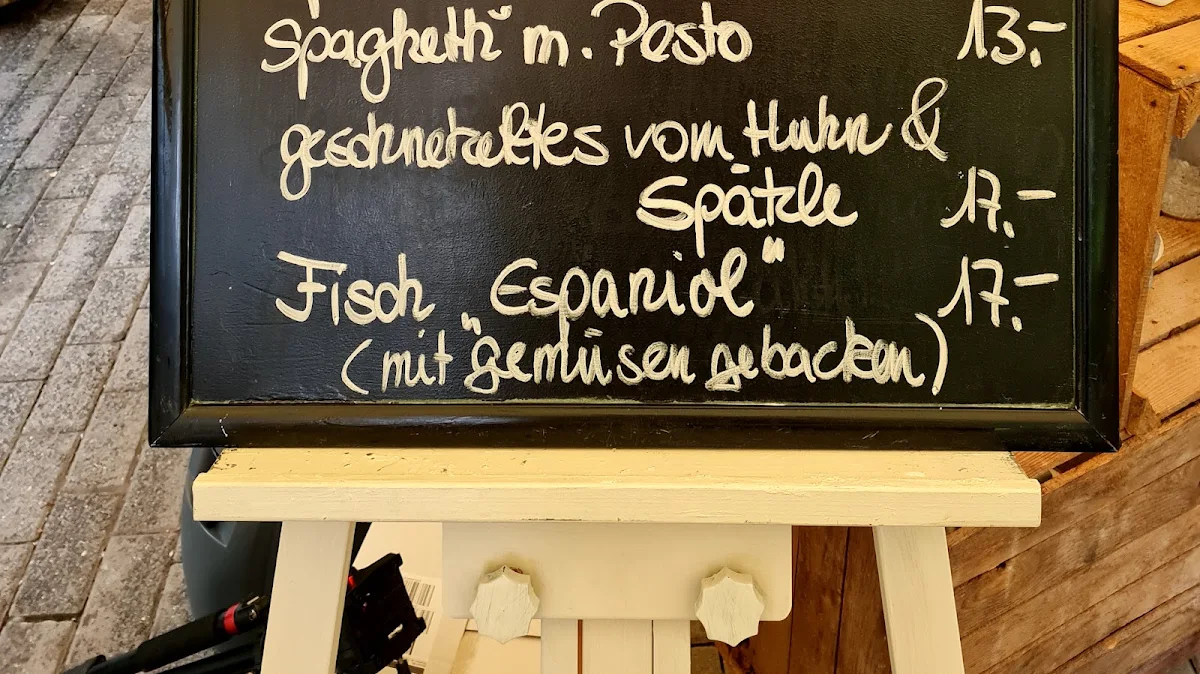 Spaghetti m. Pesto 13.-
geschnetzeltes vom Huhn &
Spätzle 17.-
Fisch „Espaniol“ 17.-
(mit gemüsen gebacken)